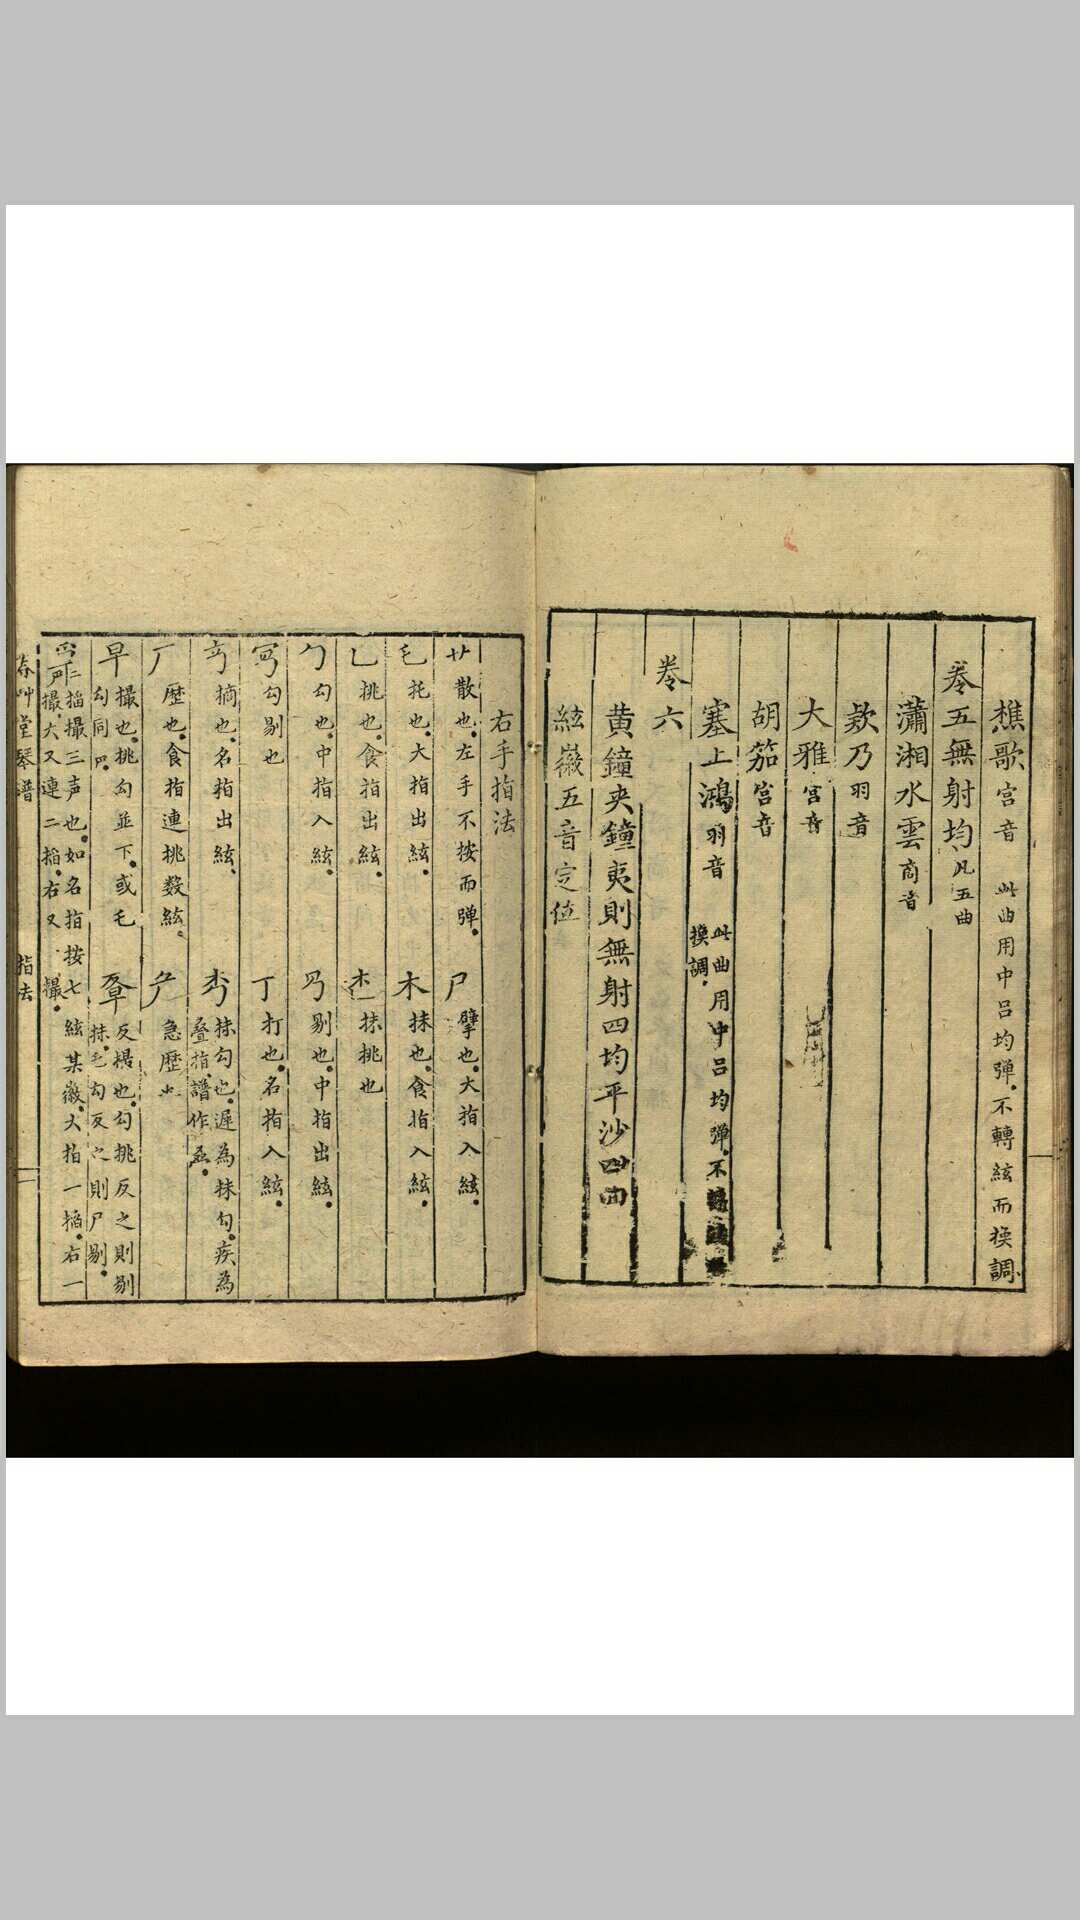 樵歌宮音 此曲用中呂均彈不轉絃而換調
卷五無射均凡五曲
瀟湘水雲商音
欵乃羽音
大雅宮音
胡笳宮音
塞上鴻羽音 此曲用中呂均彈不
換調
卷六
黃鐘夾鐘夷則無射四均平沙四曲
絃徽五音定位
右手指法
廾 散也左手不按而彈 尸 擘也大指入絃
乇 托也大指出絃 木 抹也食指入絃
乚 挑也食指出絃 抹挑也
勹 勾也中指入絃 剔也中指出絃
勾剔也 丁 打也名指入絃
摘也名指出絃 抹勾也遲為抹勾疾為
疊指譜作
厂 歷也食指連挑数絃 急歷也
早 撮也挑勾並下或乇
勾同 反撮也勾挑反之則剔
抹乇勾反之則尸剔
掐撮三声也如名指按七絃某徽大指一掐右一
撮大又連二掐右又撮
春艸堂琴譜 指法 一